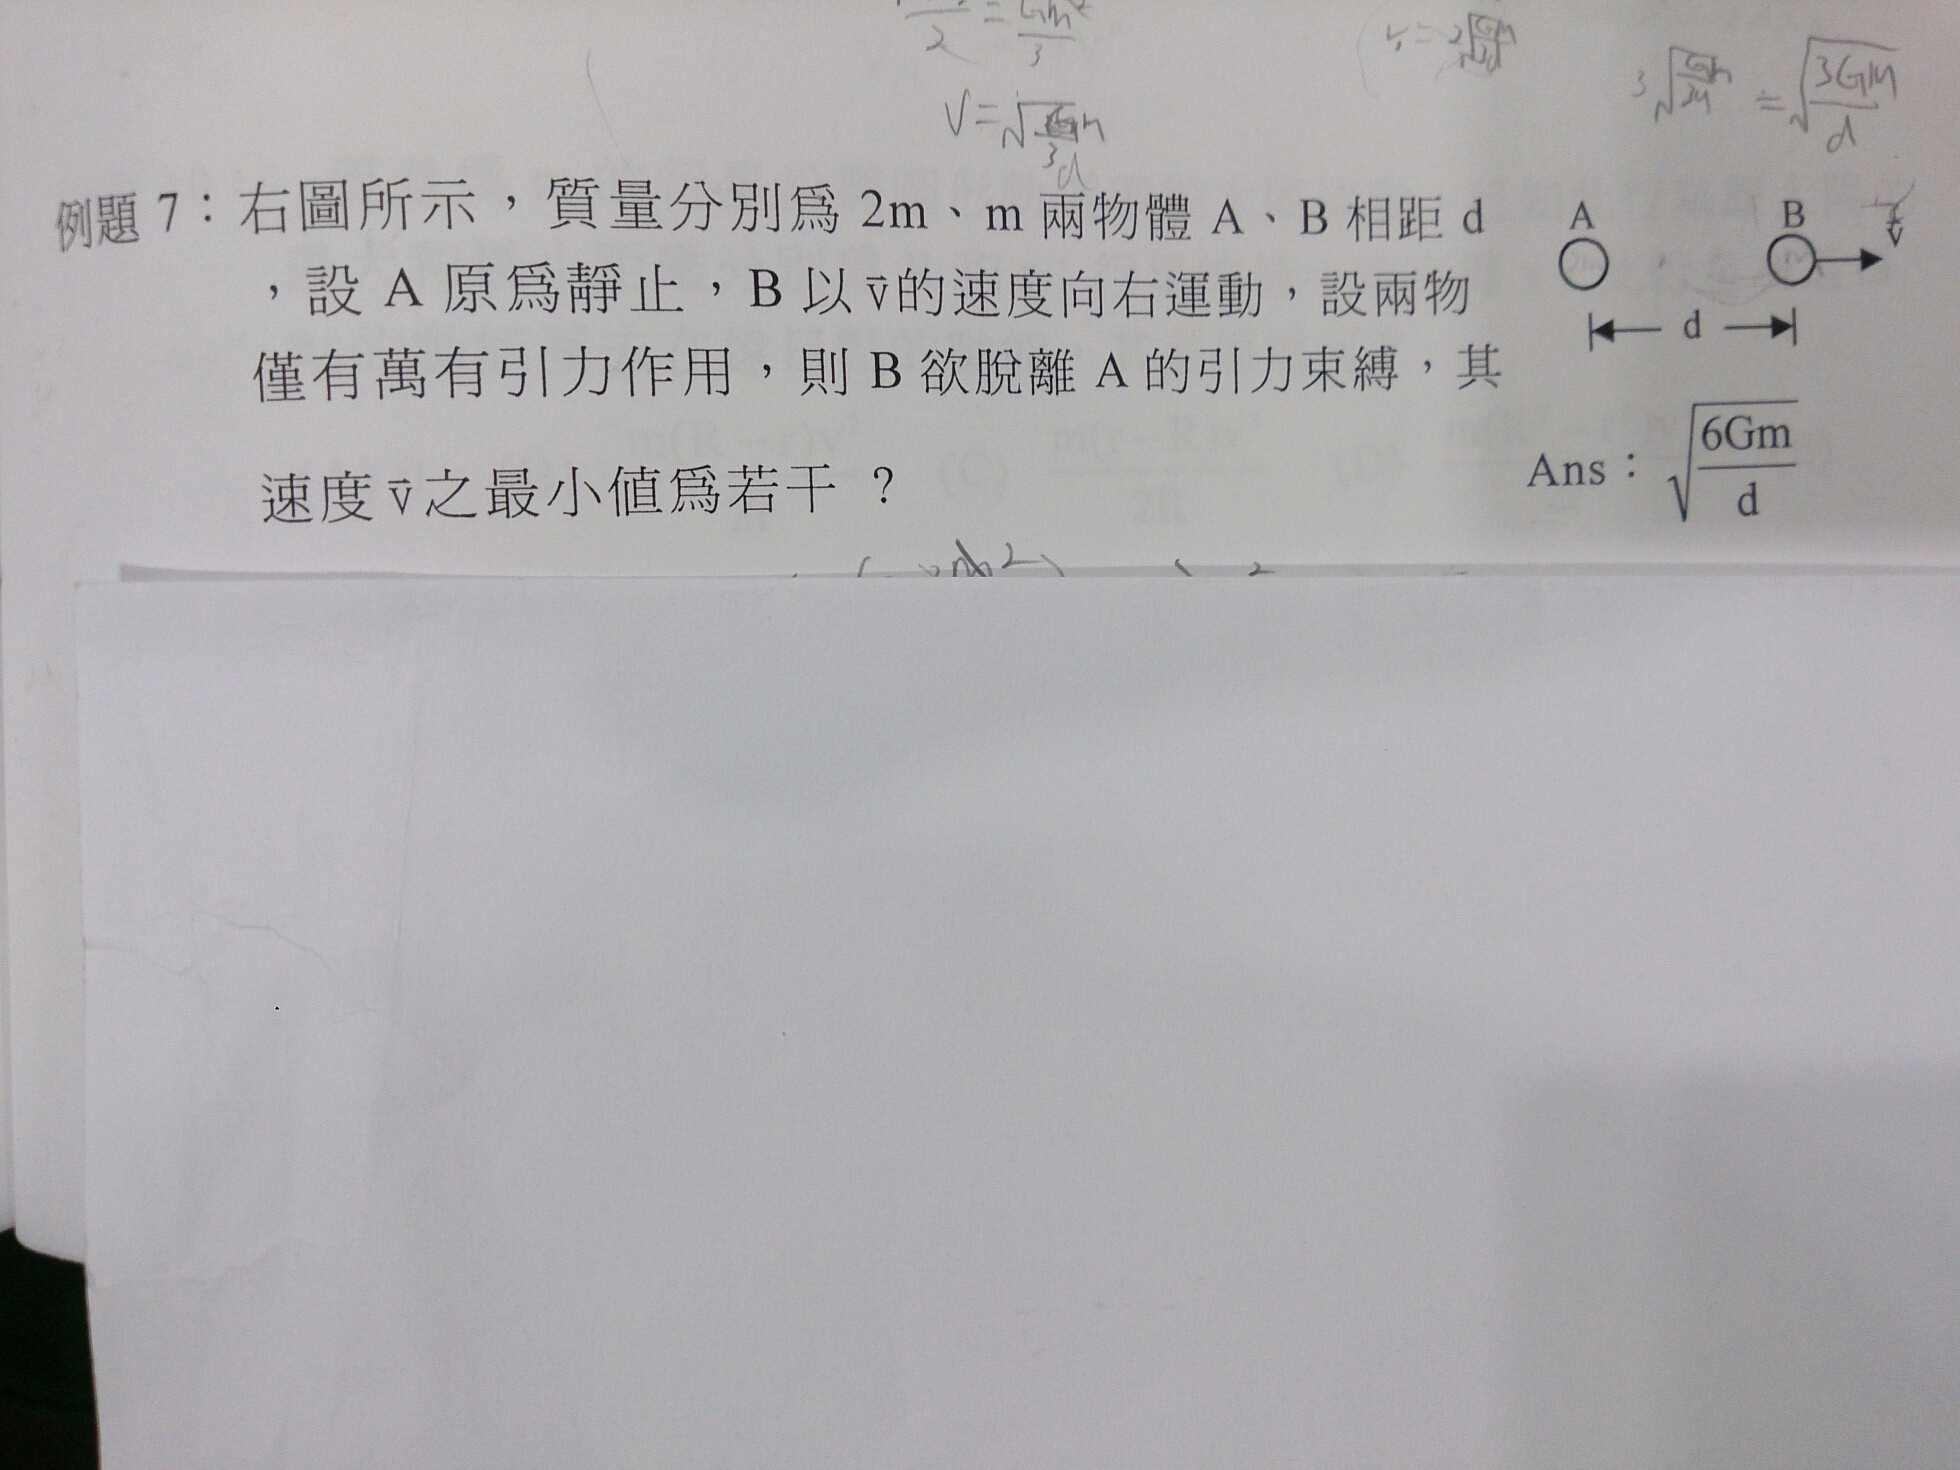 V=
= √3GM/d
例題 7：右圖所示，質量分別爲 2m、m 兩物體 A、B 相距 d
，設 A 原爲靜止，B 以v̄的速度向右運動，設兩物
僅有萬有引力作用，則 B 欲脫離 A 的引力束縛，其
速度v̄之最小值爲若干 ？
A B v̄
d
Ans：√6Gm/d